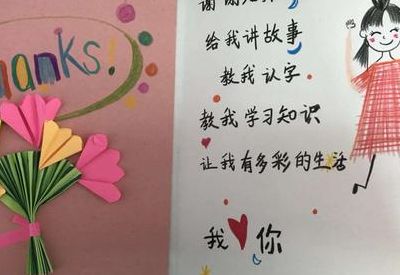 Thanks!
谢谢
给我讲故事
教我认字
教我学习知识
让我有多彩的生活
我❤你